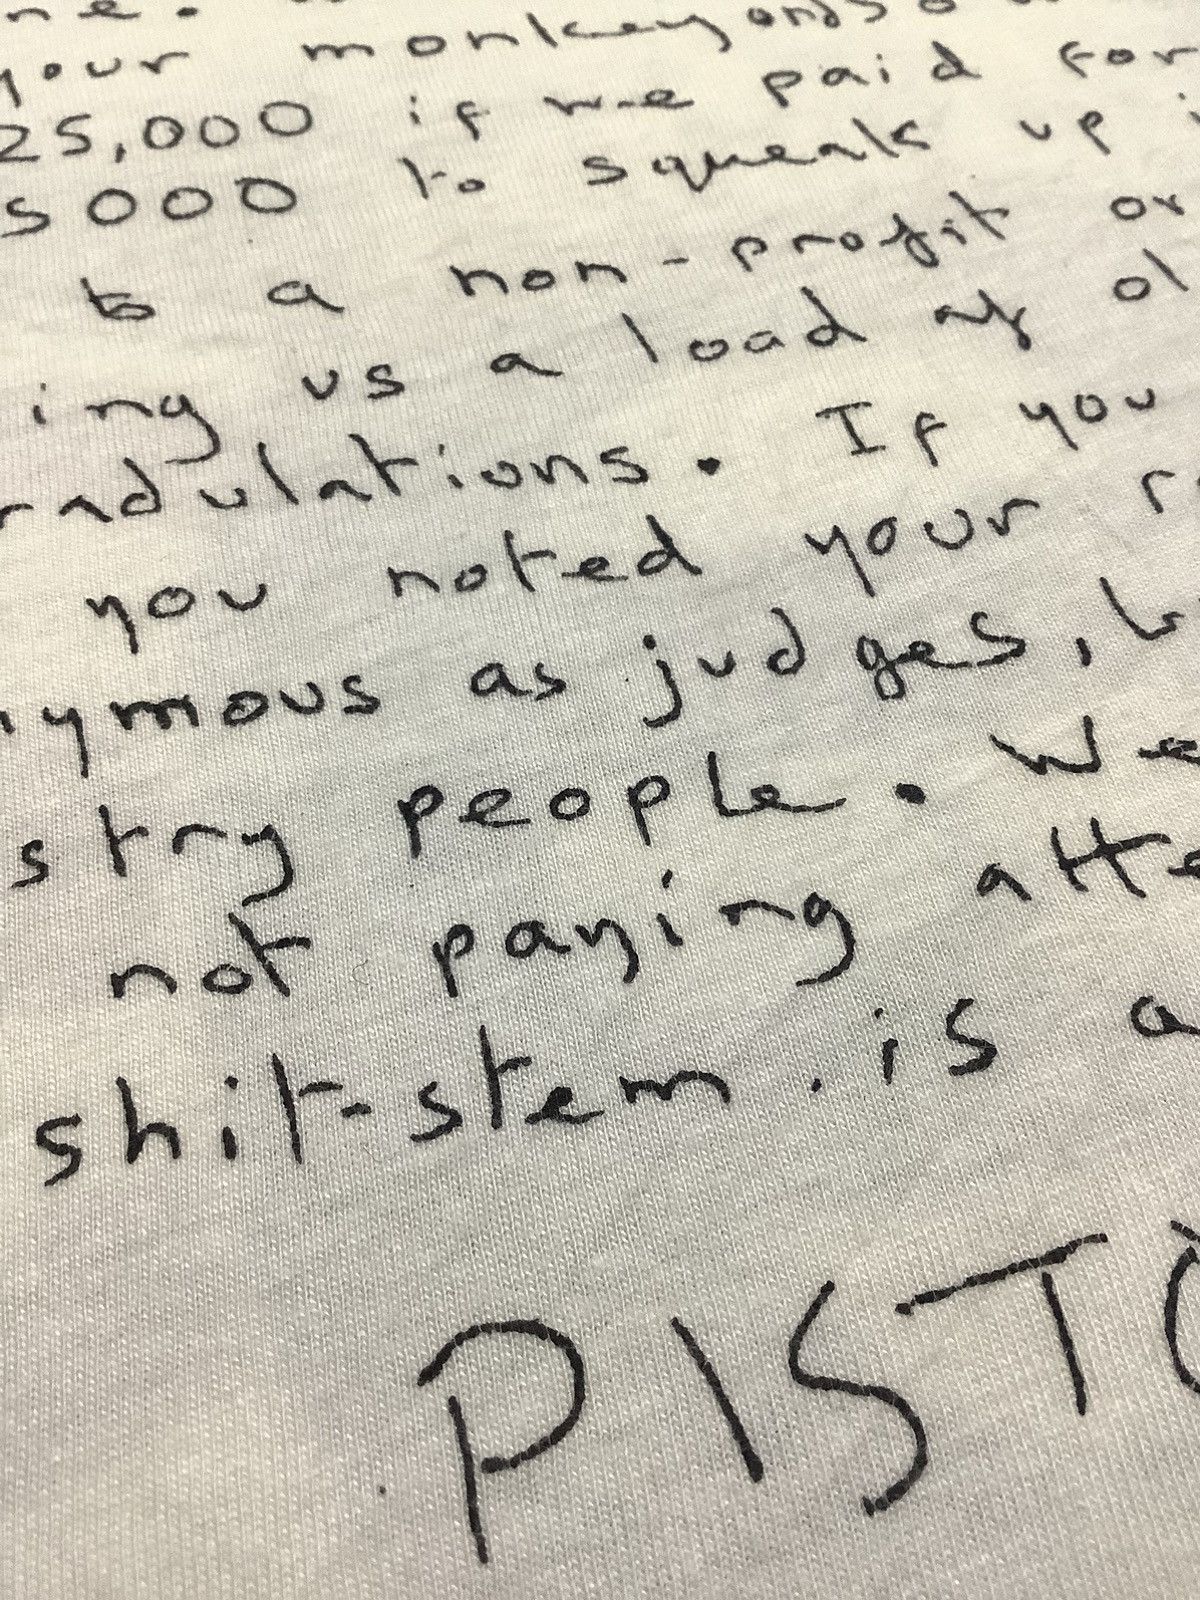 ne.
your monkey and s
25,000 if we paid for
5000 to squeak up i
to a non-profit or
ing us a load of ol
radulations. If you
you noted your r
ymous as judges, b
stry people. We
not paying atte
shit-stem. is a
PISTO